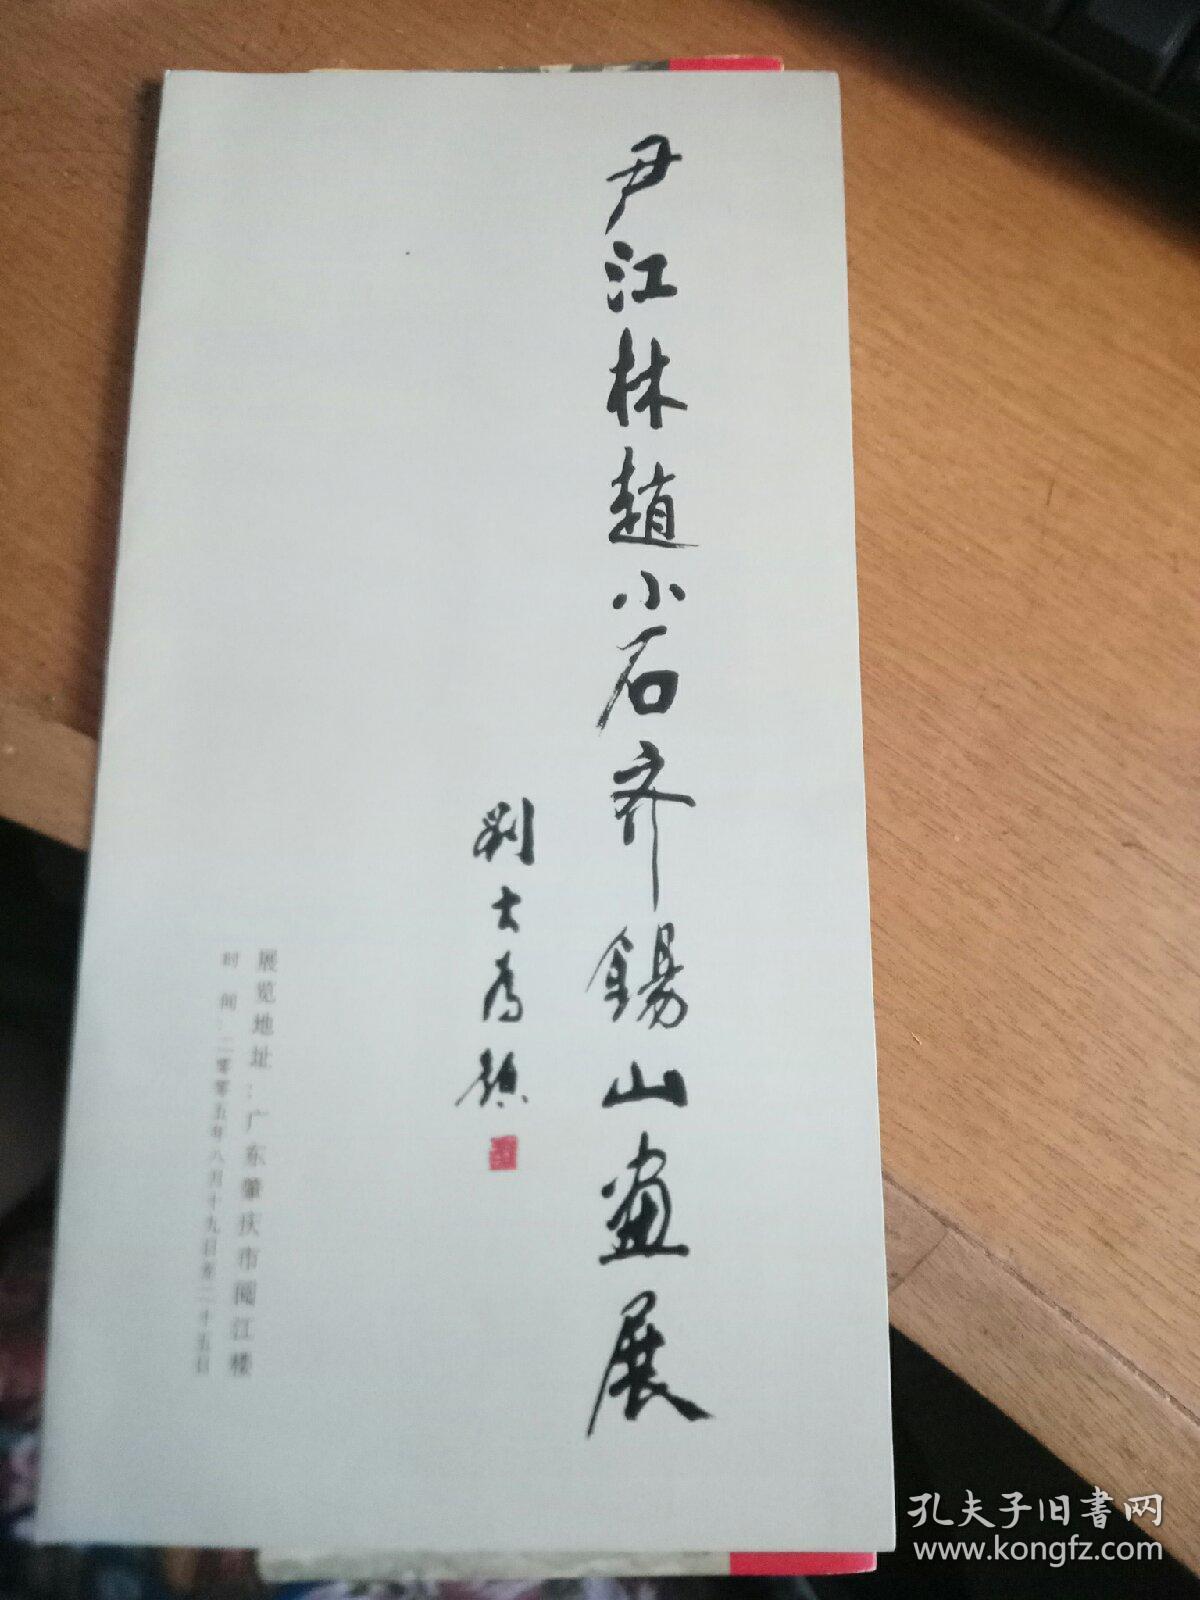 尹江林趙小石齐錫山畫展
刘大为題
展览地址：广东肇庆市阅江楼
时间：二零零五年八月十九日至二十五日
孔夫子旧書网
www.kongfz.com